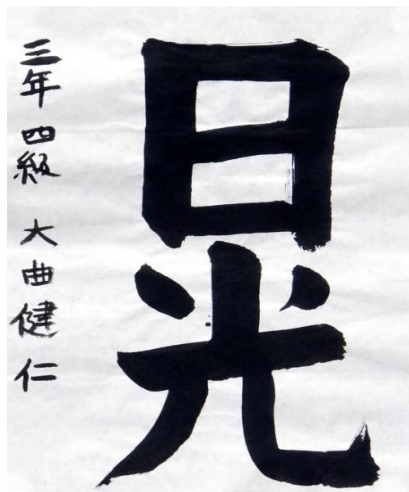 日光
三年 四級 大曲健仁